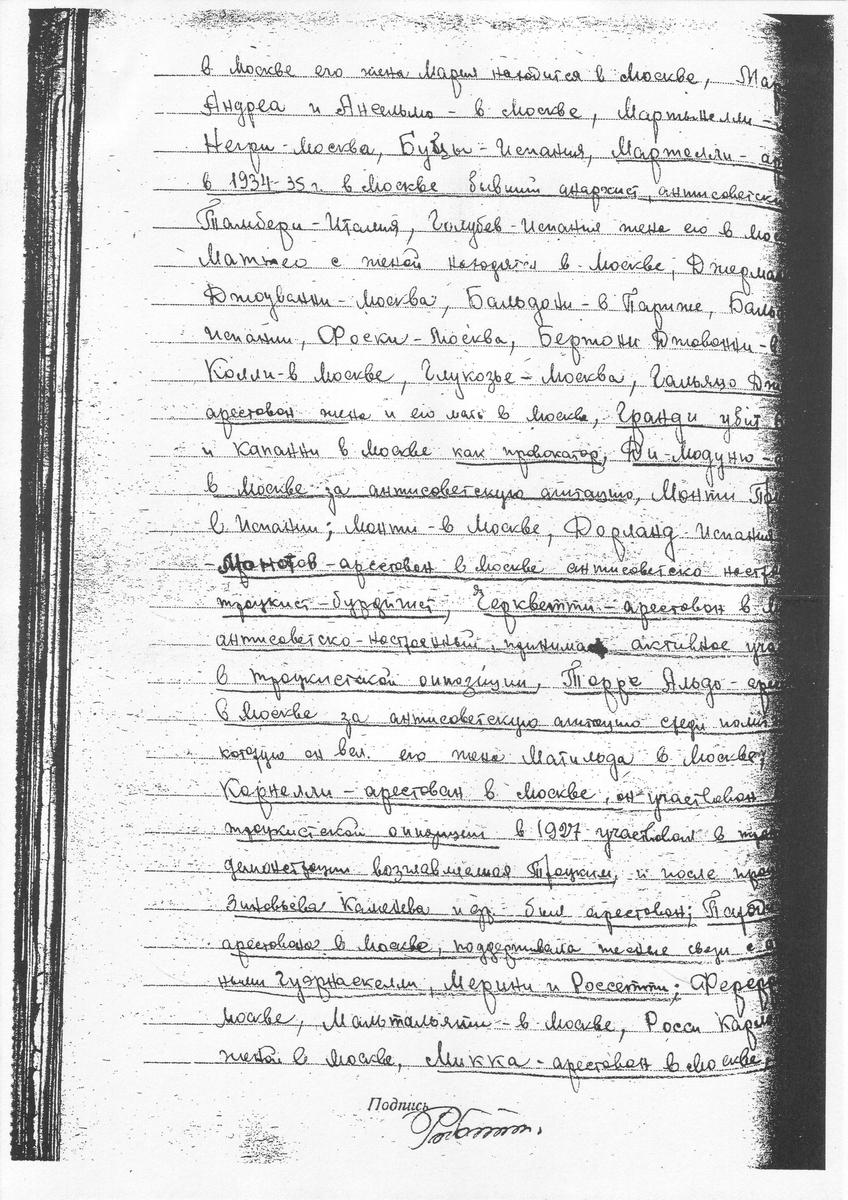 в Москве его жена Мария находится в Москве, Мар
Андреа и Ансельмо - в Москве, Мартынелли -
Негри - Москва, Буцы - Испания, Мартелли - ар
в 1934-35 г. в Москве бывший анархист, антисоветск
Тамбери - Италия, Голубев - Испания жена его в Мос
Маттео с женой находятся в Москве, Джерма
Джоуванни - Москва, Бальдони - в Париже, Баль
Испании, Фоски - Москва, Бертони Джованни - в
Колли - в Москве, Глукозье - Москва, Гальяцо Дж
арестован жена и его мать в Москве, Гранди убит в
и Капанни в Москве как провокатор, Ди-Модуньо - а
в Москве за антисоветскую агитацию, Монти При
в Испании; Монти - в Москве, Дорланд - Испания
- арестован в Москве антисоветско настро
троцкист-бурдигист, Черкветти - арестован в М
антисоветско-настроенный, принимал активное уча
в троцкистской оппозиции, Торре Альдо - аре
в Москве за антисоветскую агитацию среди полит
которую он вел. его жена Матильда в Москве,
Корнелли - арестован в Москве, он участвовал
троцкистской оппозиции в 1927 участвовал в тро
демонстрации возглавляемая Троцким, и после про
Зиновьева Каменева и др. был арестован;
арестована в Москве, поддерживала тесные связи с а
ными Гуэрнаскелли, Мерини и Россетти; Ферер
Москве, Мальтальяти - в Москве, Росси Карл
женой в Москве, Микка - арестован в Москве,
Подпись